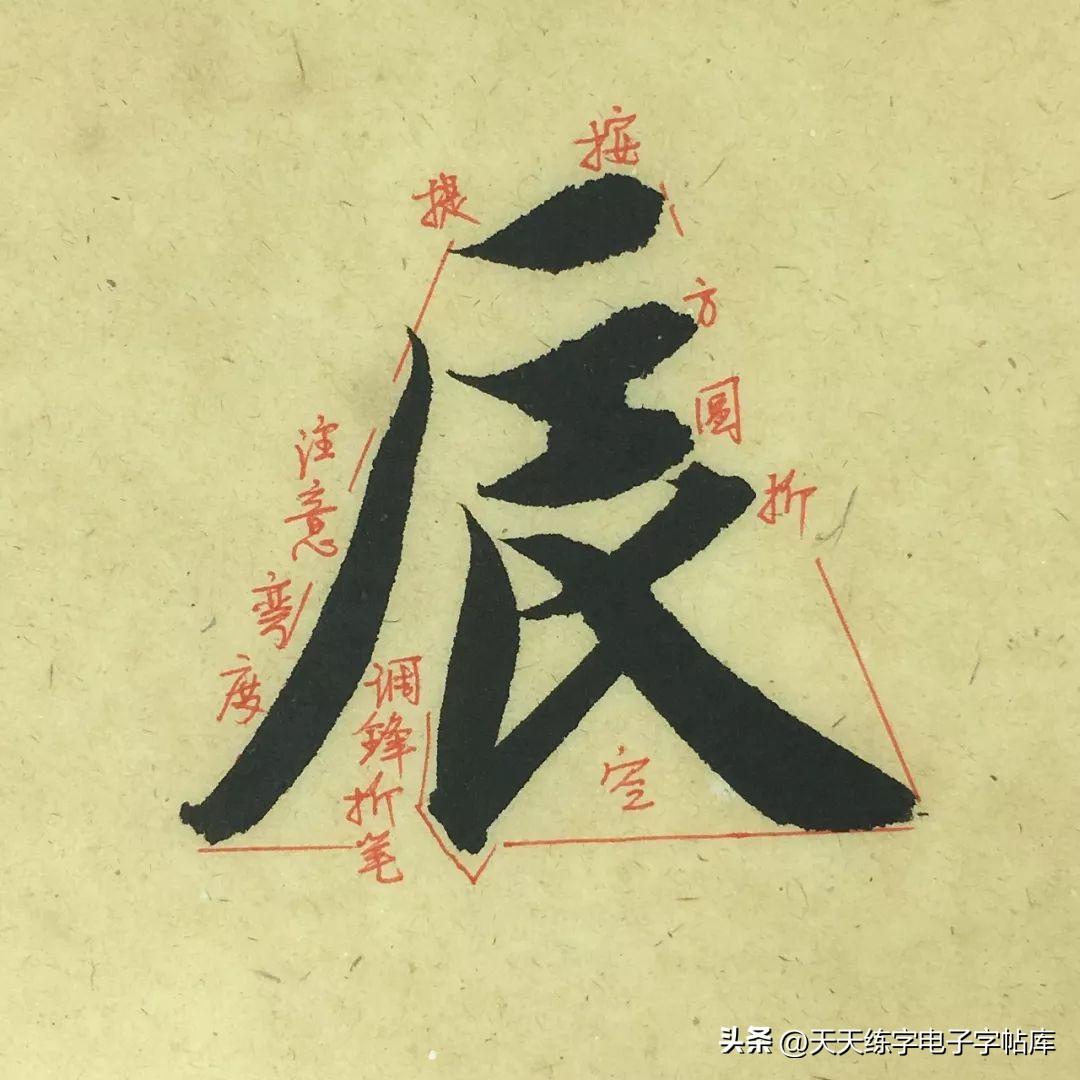 辰
按
提
方
圆
折
注意弯度
调锋折笔
空
头条 @天天练字电子字帖库